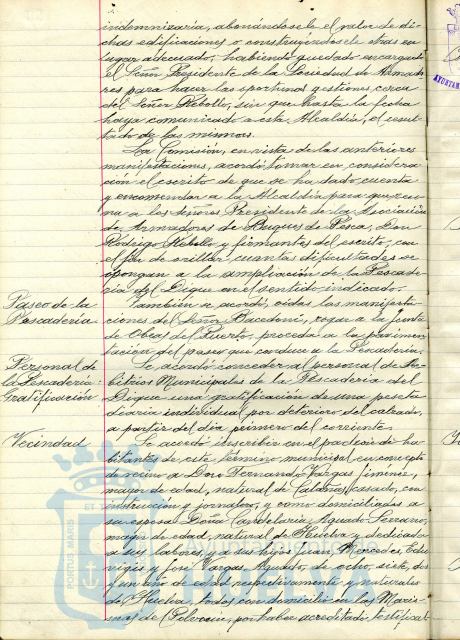 indemnizaria, abonándosele el valor de di-
chas edificaciones o construyéndosele otras en
lugar adecuado, habiendo quedado encargado
el Señor Presidente de la Sociedad de Armado-
res para hacer las oportunas gestiones cerca
del Señor Rebollo, sin que hasta la fecha
haya comunicado a esta Alcaldía, el resul-
tado de las mismas.
La Comisión, en vista de las anteriores
manifestaciones, acordó, tomar en considera-
ción el escrito de que se ha dado cuenta
y encomendar a la Alcaldía para que reu-
na a los Señores Presidente de la Asociación
de Armadores de Buques de Pesca, Don
Rodrigo Rebollo y firmantes del escrito, con
el fin de orillar cuantas dificultades se
opongan a la ampliación de la Pescade-
ría del Dique en el sentido indicado.
Paseo de la
Pescadería.
También se acordó, oidas las manifesta-
ciones del Señor rogar a la Junta
de Obras del Puerto, proceda a la pavimen-
tación del paseo que conduce a la Pescadería.
Personal de
la Pescadería
Gratificación
Se acordó conceder al personal de Ar-
bitrios Municipales de la Pescadería del
Dique una gratificación de una peseta
diaria individual por deterioro del calzado,
a partir del día primero del corriente.
Vecindad
Se acordó inscribir en el padrón de ha-
bitantes de este término municipal en concepto
de vecino a Don Fernando Vargas Jiménez,
mayor de edad, natural de Calañas, casado, con
instrucción y jornalero, y como domiciliados a
su esposa Doña Candelaria Aguado Serrano,
mayor de edad, natural de Huelva y dedicada
a sus labores, y a sus hijos Juan, Mercedes, Edu-
vigis y José Vargas Aguado, de ocho, siete, dos
y un año de edad, respectivamente y naturales
de Huelva, todos con domicilio en las Maris-
mas de por haber acreditado, testifical-
PORTUS MARIS
Ayuntamiento de
HUELVA
AYUNTAM